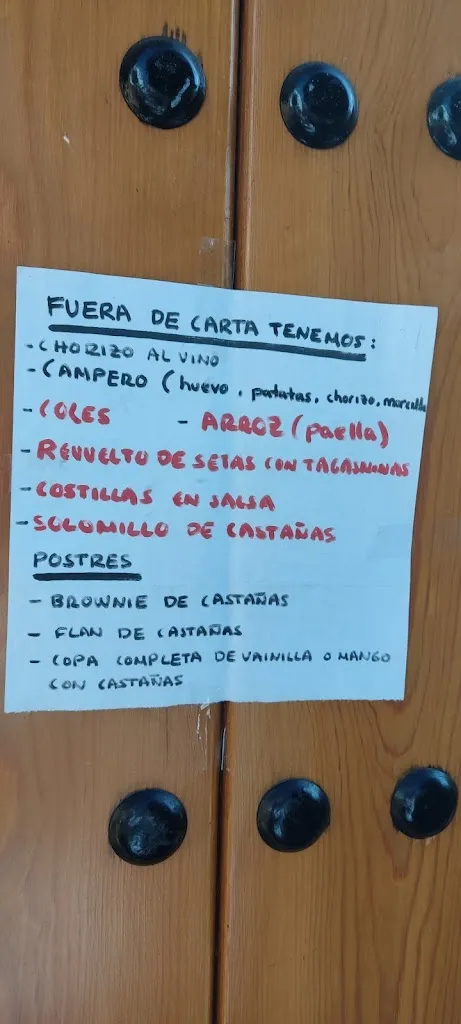 FUERA DE CARTA TENEMOS:
- CHORIZO AL VINO
- CAMPERO (huevo, patatas, chorizo, morcilla
- COLES - ARROZ (paella)
- REVUELTO DE SETAS CON TAGARNINAS
- COSTILLAS EN SALSA
- SOLOMILLO DE CASTAÑAS
POSTRES
- BROWNIE DE CASTAÑAS
- FLAN DE CASTAÑAS
- COPA COMPLETA DE VAINILLA O MANGO
CON CASTAÑAS